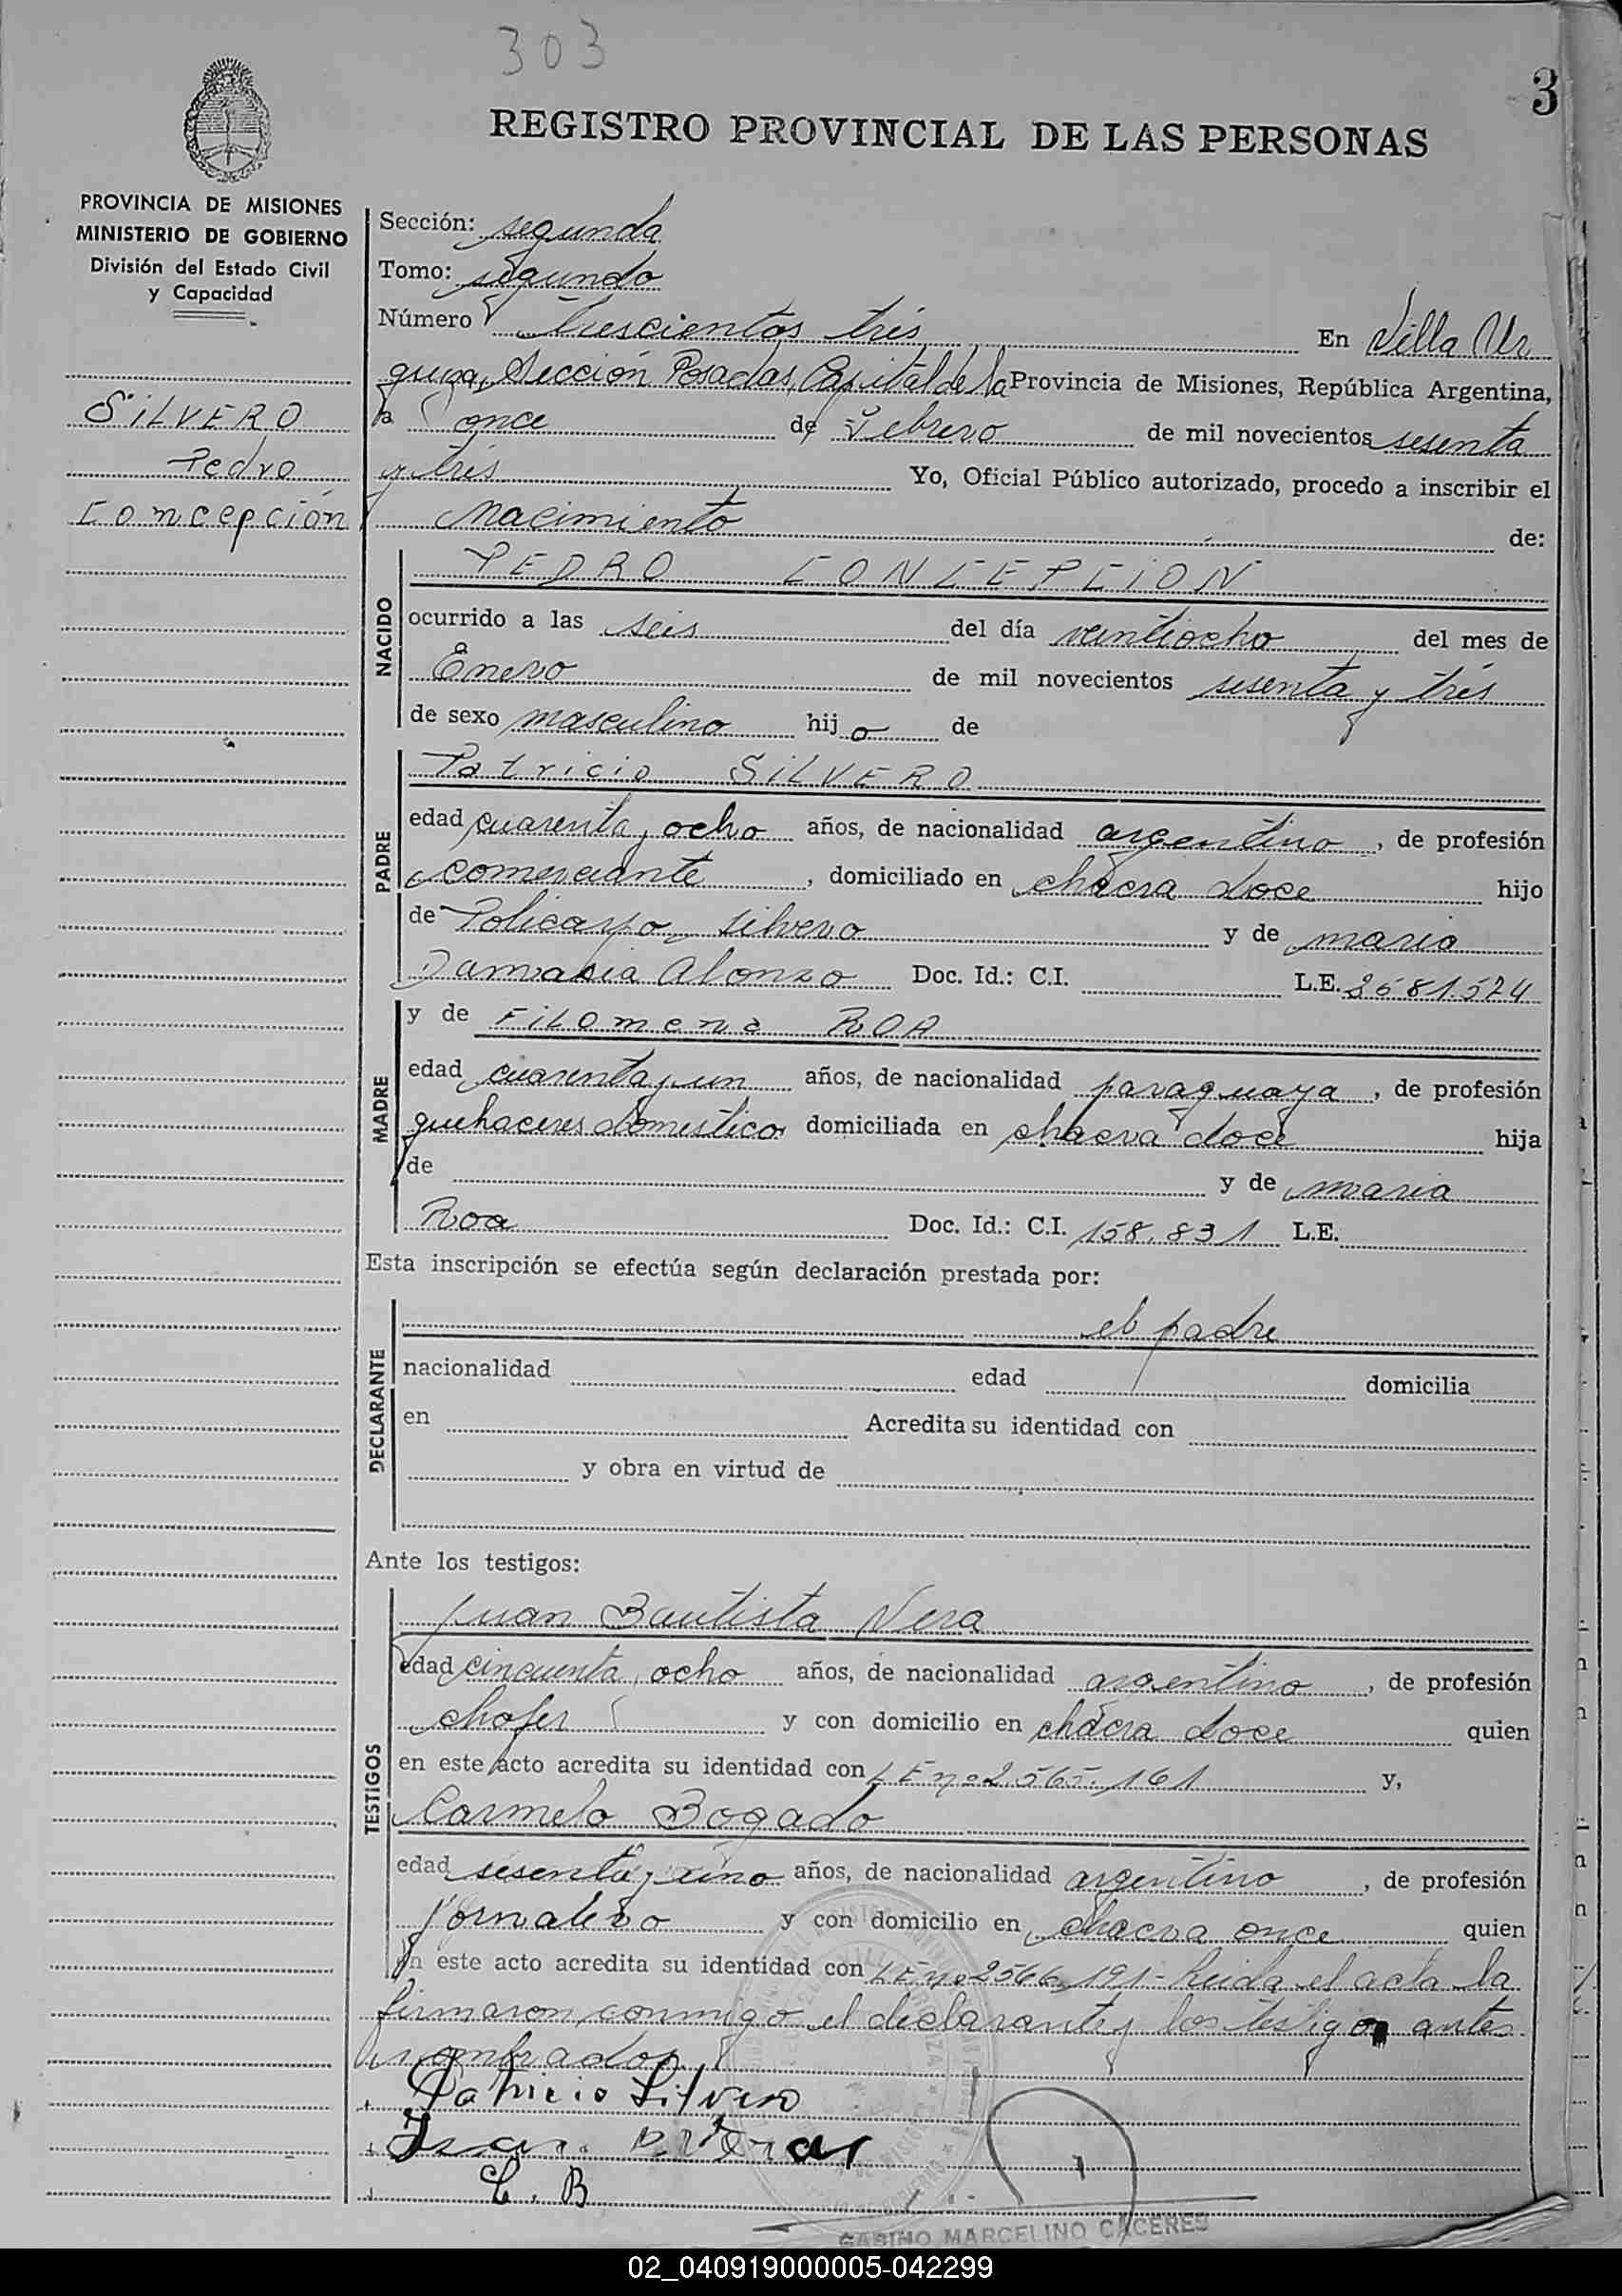 303
3
REGISTRO PROVINCIAL DE LAS PERSONAS
PROVINCIA DE MISIONES
MINISTERIO DE GOBIERNO
División del Estado Civil
y Capacidad
SILVERO
Pedro
Concepción
Sección: segunda
Tomo: segundo
Número trescientos trés En Villa Ur
quiza, Sección Posadas, Capital de la Provincia de Misiones, República Argentina,
a once de Febrero de mil novecientos sesenta
y trés Yo, Oficial Público autorizado, procedo a inscribir el
Nacimiento de:
NACIDO
PEDRO CONCEPCION
ocurrido a las seis del día veintiocho del mes de
Enero de mil novecientos sesenta y trés
de sexo masculino hijo de
PADRE
Patricio SILVERO
edad cuarenta y ocho años, de nacionalidad argentino, de profesión
comerciante, domiciliado en chacra doce hijo
de Policarpo Silvero y de maria
Damasia Alonzo Doc. Id.: C.I. L.E. 2681.524
MADRE
y de Filomena ROA
edad cuarenta y un años, de nacionalidad paraguaya, de profesión
quehaceres domesticos domiciliada en chacra doce hija
de y de maria
Roa Doc. Id.: C.I. 158.831 L.E.
Esta inscripción se efectúa según declaración prestada por:
DECLARANTE
el padre
nacionalidad edad domicilia
en Acredita su identidad con
y obra en virtud de
Ante los testigos:
TESTIGOS
Juan Bautista Vera
edad cincuenta y ocho años, de nacionalidad argentino, de profesión
chofer y con domicilio en chacra doce quien
en este acto acredita su identidad con L E nº 2.565.161 y,
Carmelo Bogado
edad sesenta y uno años, de nacionalidad argentino, de profesión
jornalero y con domicilio en chacra once quien
en este acto acredita su identidad con L E nº 2566.191- Leida el acta la
firmaron conmigo el declarante y los testigos antes
nombrados
Patricio Silvero
Juan B. Vera
C. B
GABINO MARCELINO CACERES
02_040919000005-042299